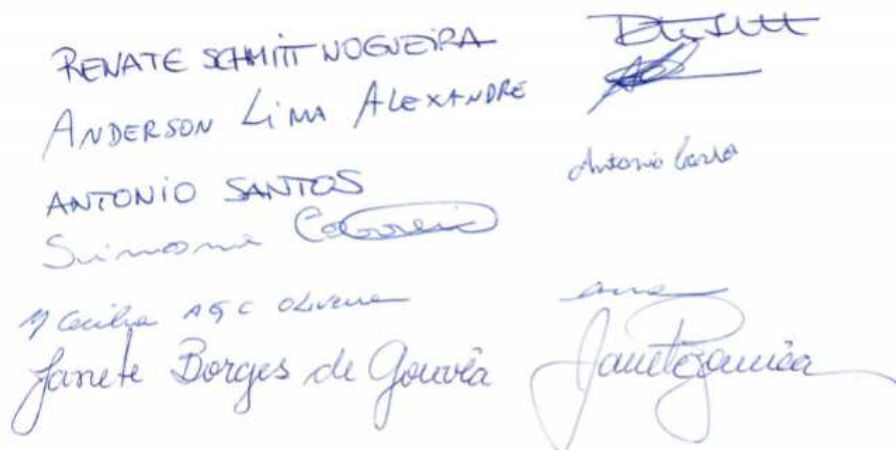 RENATE SCHMITT NOGUEIRA
ANDERSON LIMA ALEXANDRE
ANTONIO SANTOS Antonio
Simone
M Cecilia AGC Oliveira
Janete Borges de Gouvêa Janete Gouvêa